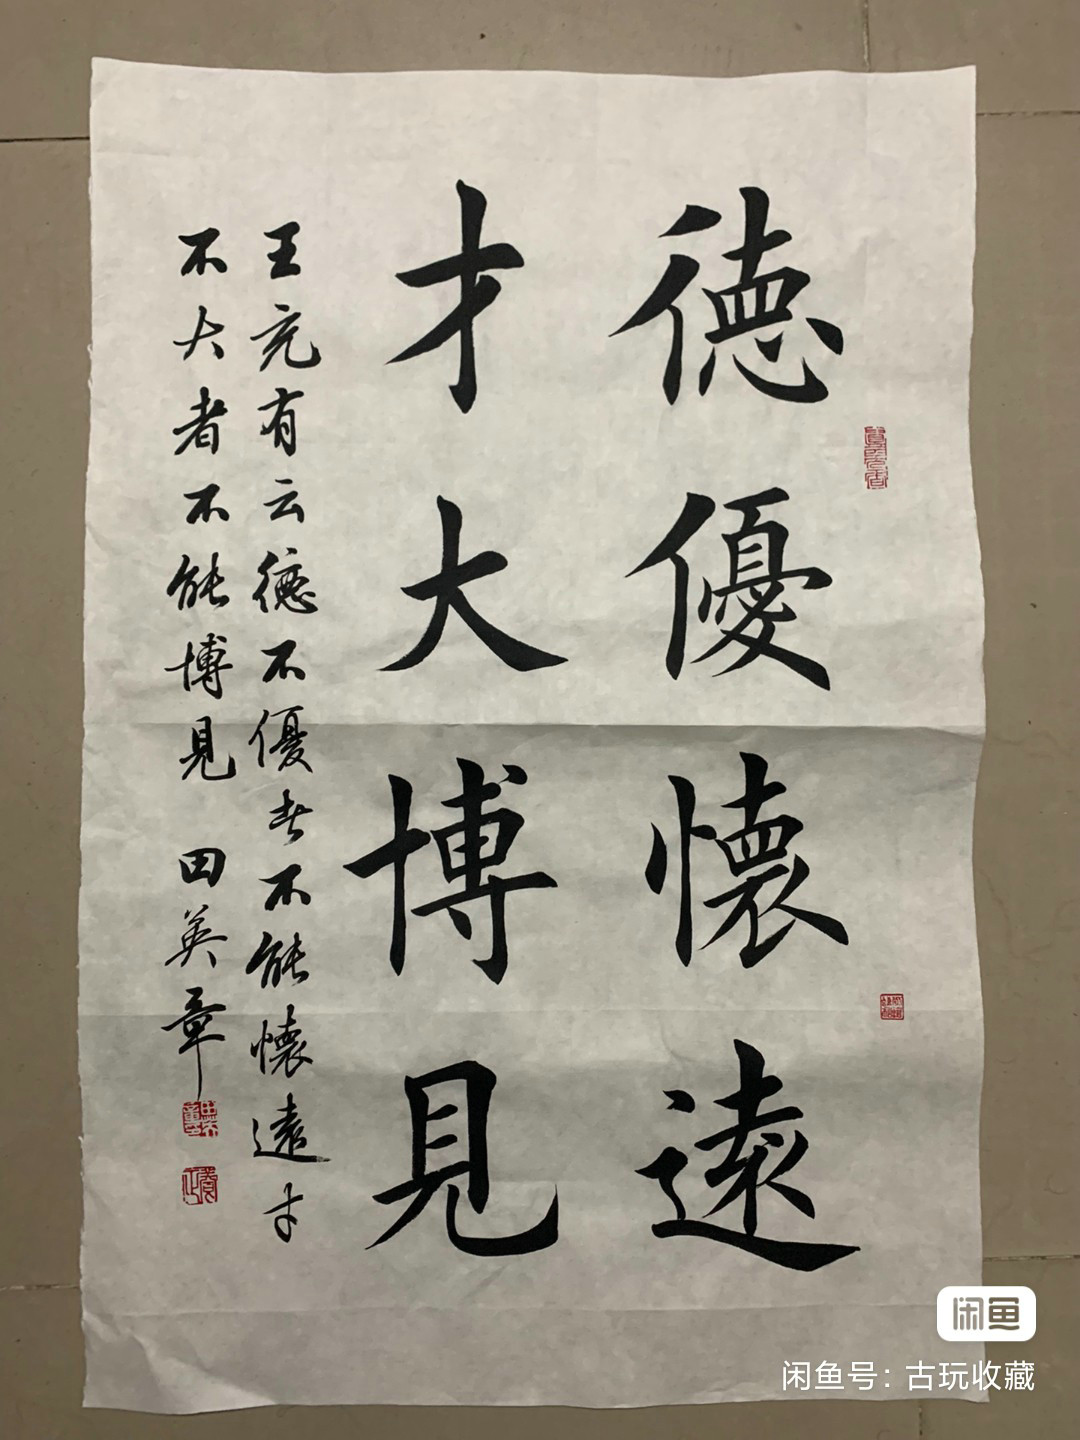 德優懷遠
才大博見
王充有云德不優者不能懷遠才
不大者不能博見 田英章
闲鱼
闲鱼号：古玩收藏